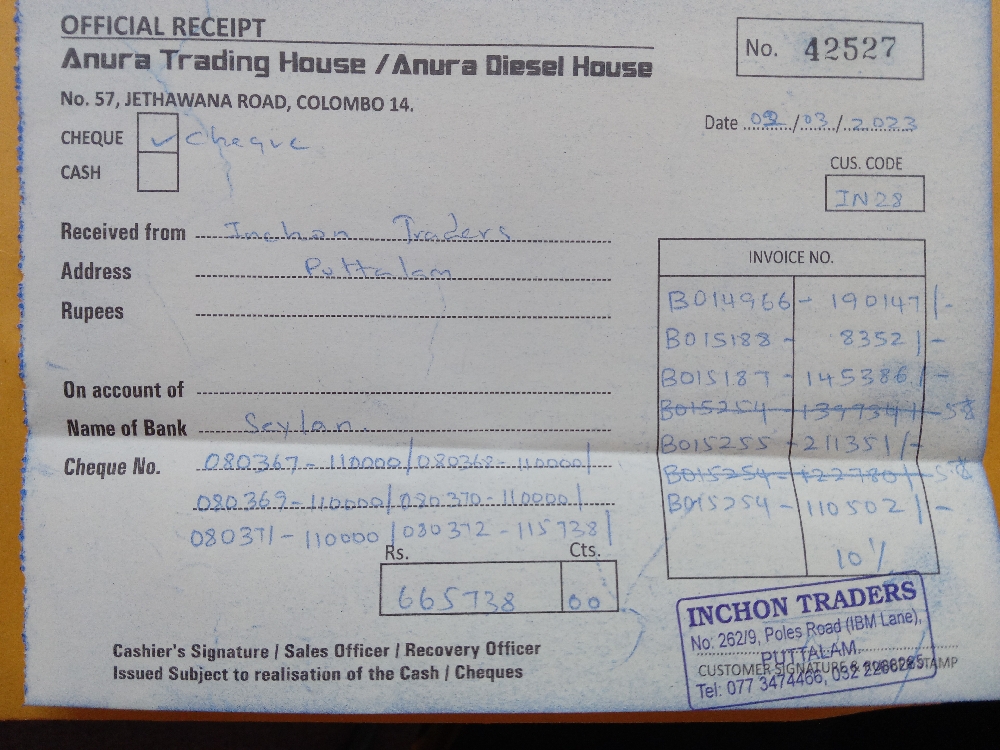 OFFICIAL RECEIPT
Anura Trading House / Anura Diesel House
No. 57, JETHAWANA ROAD, COLOMBO 14.
No. 42527
Date 02/03/2023
CHEQUE ✓ cheque
CASH
CUS. CODE
IN28
Received from Inchon Traders
Address Puttalam
Rupees
On account of
Name of Bank Seylan.
Cheque No. 080367 - 110000/080368 - 110000/
080369 - 110000/080370 - 110000/
080371 - 110000/080372 - 115738/
Rs. Cts.
665738 00
INVOICE NO.
B014966 - 190147/-
B015188 - 8352/-
B015187 - 145386/-
B015254 - 139734/-
B015255 - 211351/-
B015254 - 122780/-
B015254 - 110502/-
10%
Cashier's Signature / Sales Officer / Recovery Officer
Issued Subject to realisation of the Cash / Cheques
INCHON TRADERS
No: 262/9, Poles Road (IBM Lane),
PUTTALAM.
CUSTOMER SIGNATURE & STAMP
Tel: 077 3474466, 032 2266285